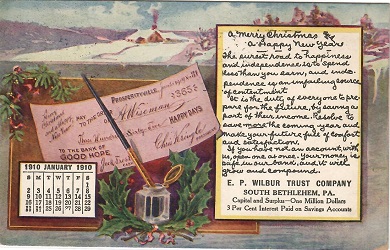 A Merry Christmas &
A Happy New Year
The surest road to happiness
and independence is to spend
less than you earn, and inde-
pendence is an unfailing source
of contentment.
It is the duty of everyone to pre-
pare for the future, by saving as
part of their income. Resolve to
save more the coming year, and
make your future one of comfort
and satisfaction.
If you have not an account with
us, open one at once. Your money is
safe in our bank, and it will
grow and compound.
E. P. WILBUR TRUST COMPANY
SOUTH BETHLEHEM, PA.
Capital and Surplus—One Million Dollars
3 Per Cent Interest Paid on Savings Accounts
PROSPERITYVILLE,
$365
PAY TO THE
A. Wiseman
HAPPY DAYS
TO THE BANK OF
GOOD HOPE
Chris Kringle
1910 JANUARY 1910
S M T W T F S
1
2 3 4 5 6 7 8
9 10 11 12 13 14 15
16 17 18 19 20 21 22